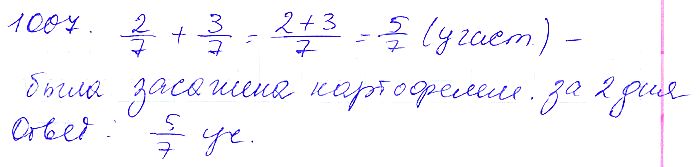 1007. 2/7 + 3/7 = (2+3)/7 = 5/7 (участ.) –
была засажина картофелем. за 2 дня
Ответ: 5/7 уч.